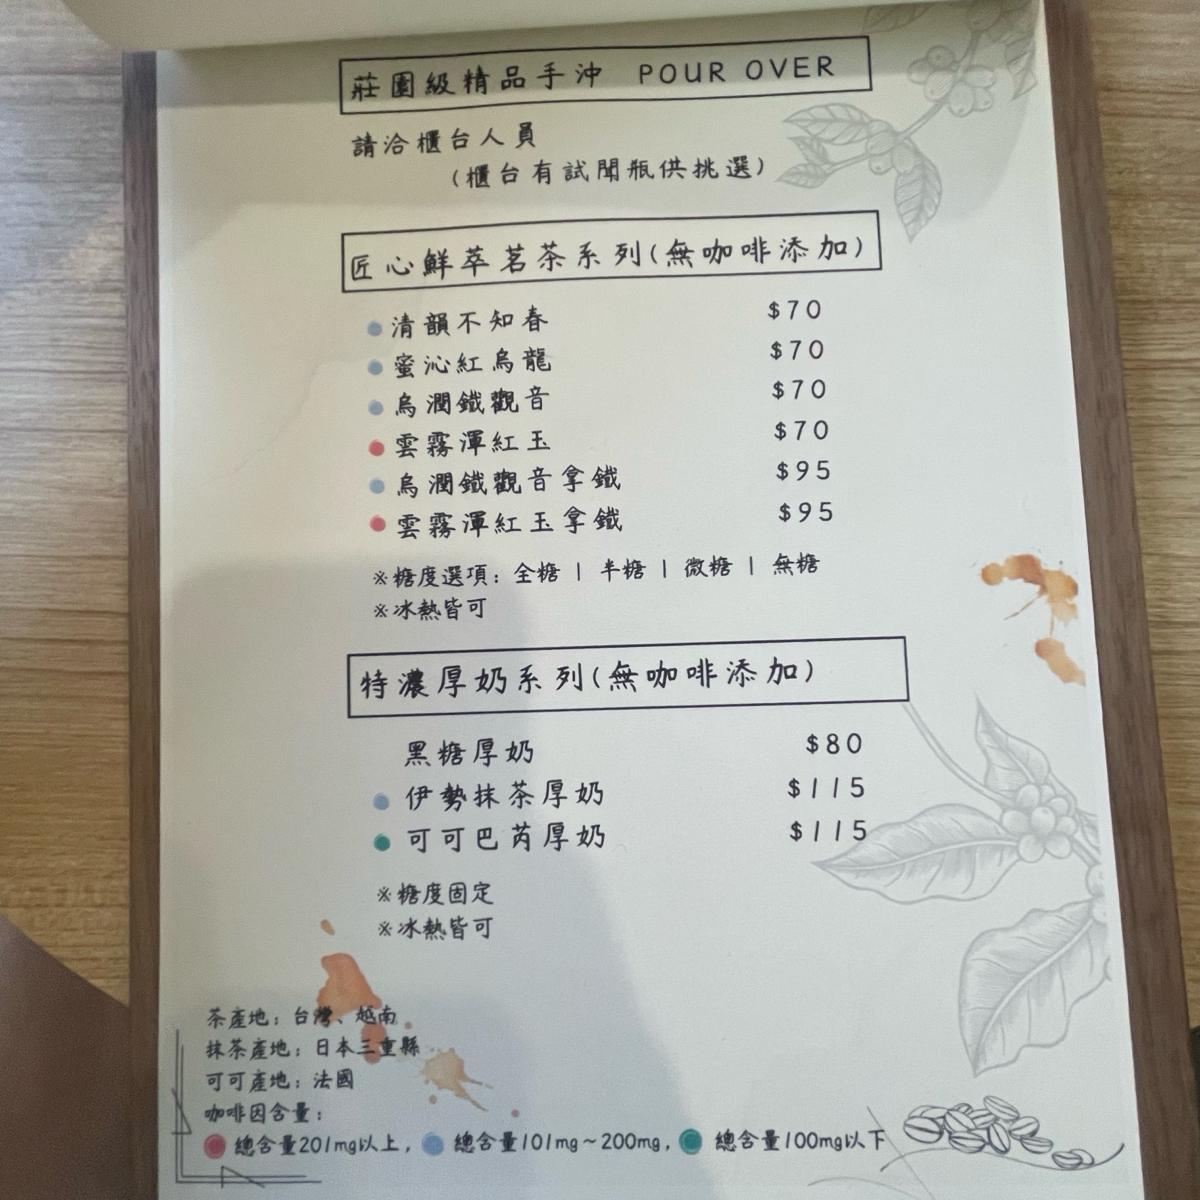 莊園級精品手沖 POUR OVER
請洽櫃台人員
(櫃台有試聞瓶供挑選)
匠心鮮萃茗茶系列(無咖啡添加)
清韻不知春 $70
蜜沁紅烏龍 $70
烏潤鐵觀音 $70
雲霧渾紅玉 $70
烏潤鐵觀音拿鐵 $95
雲霧渾紅玉拿鐵 $95
※糖度選項: 全糖 | 半糖 | 微糖 | 無糖
※冰熱皆可
特濃厚奶系列(無咖啡添加)
黑糖厚奶 $80
伊勢抹茶厚奶 $115
可可巴芮厚奶 $115
※糖度固定
※冰熱皆可
茶產地: 台灣、越南
抹茶產地: 日本三重縣
可可產地: 法國
咖啡因含量:
總含量201mg以上, 總含量101mg~200mg, 總含量100mg以下